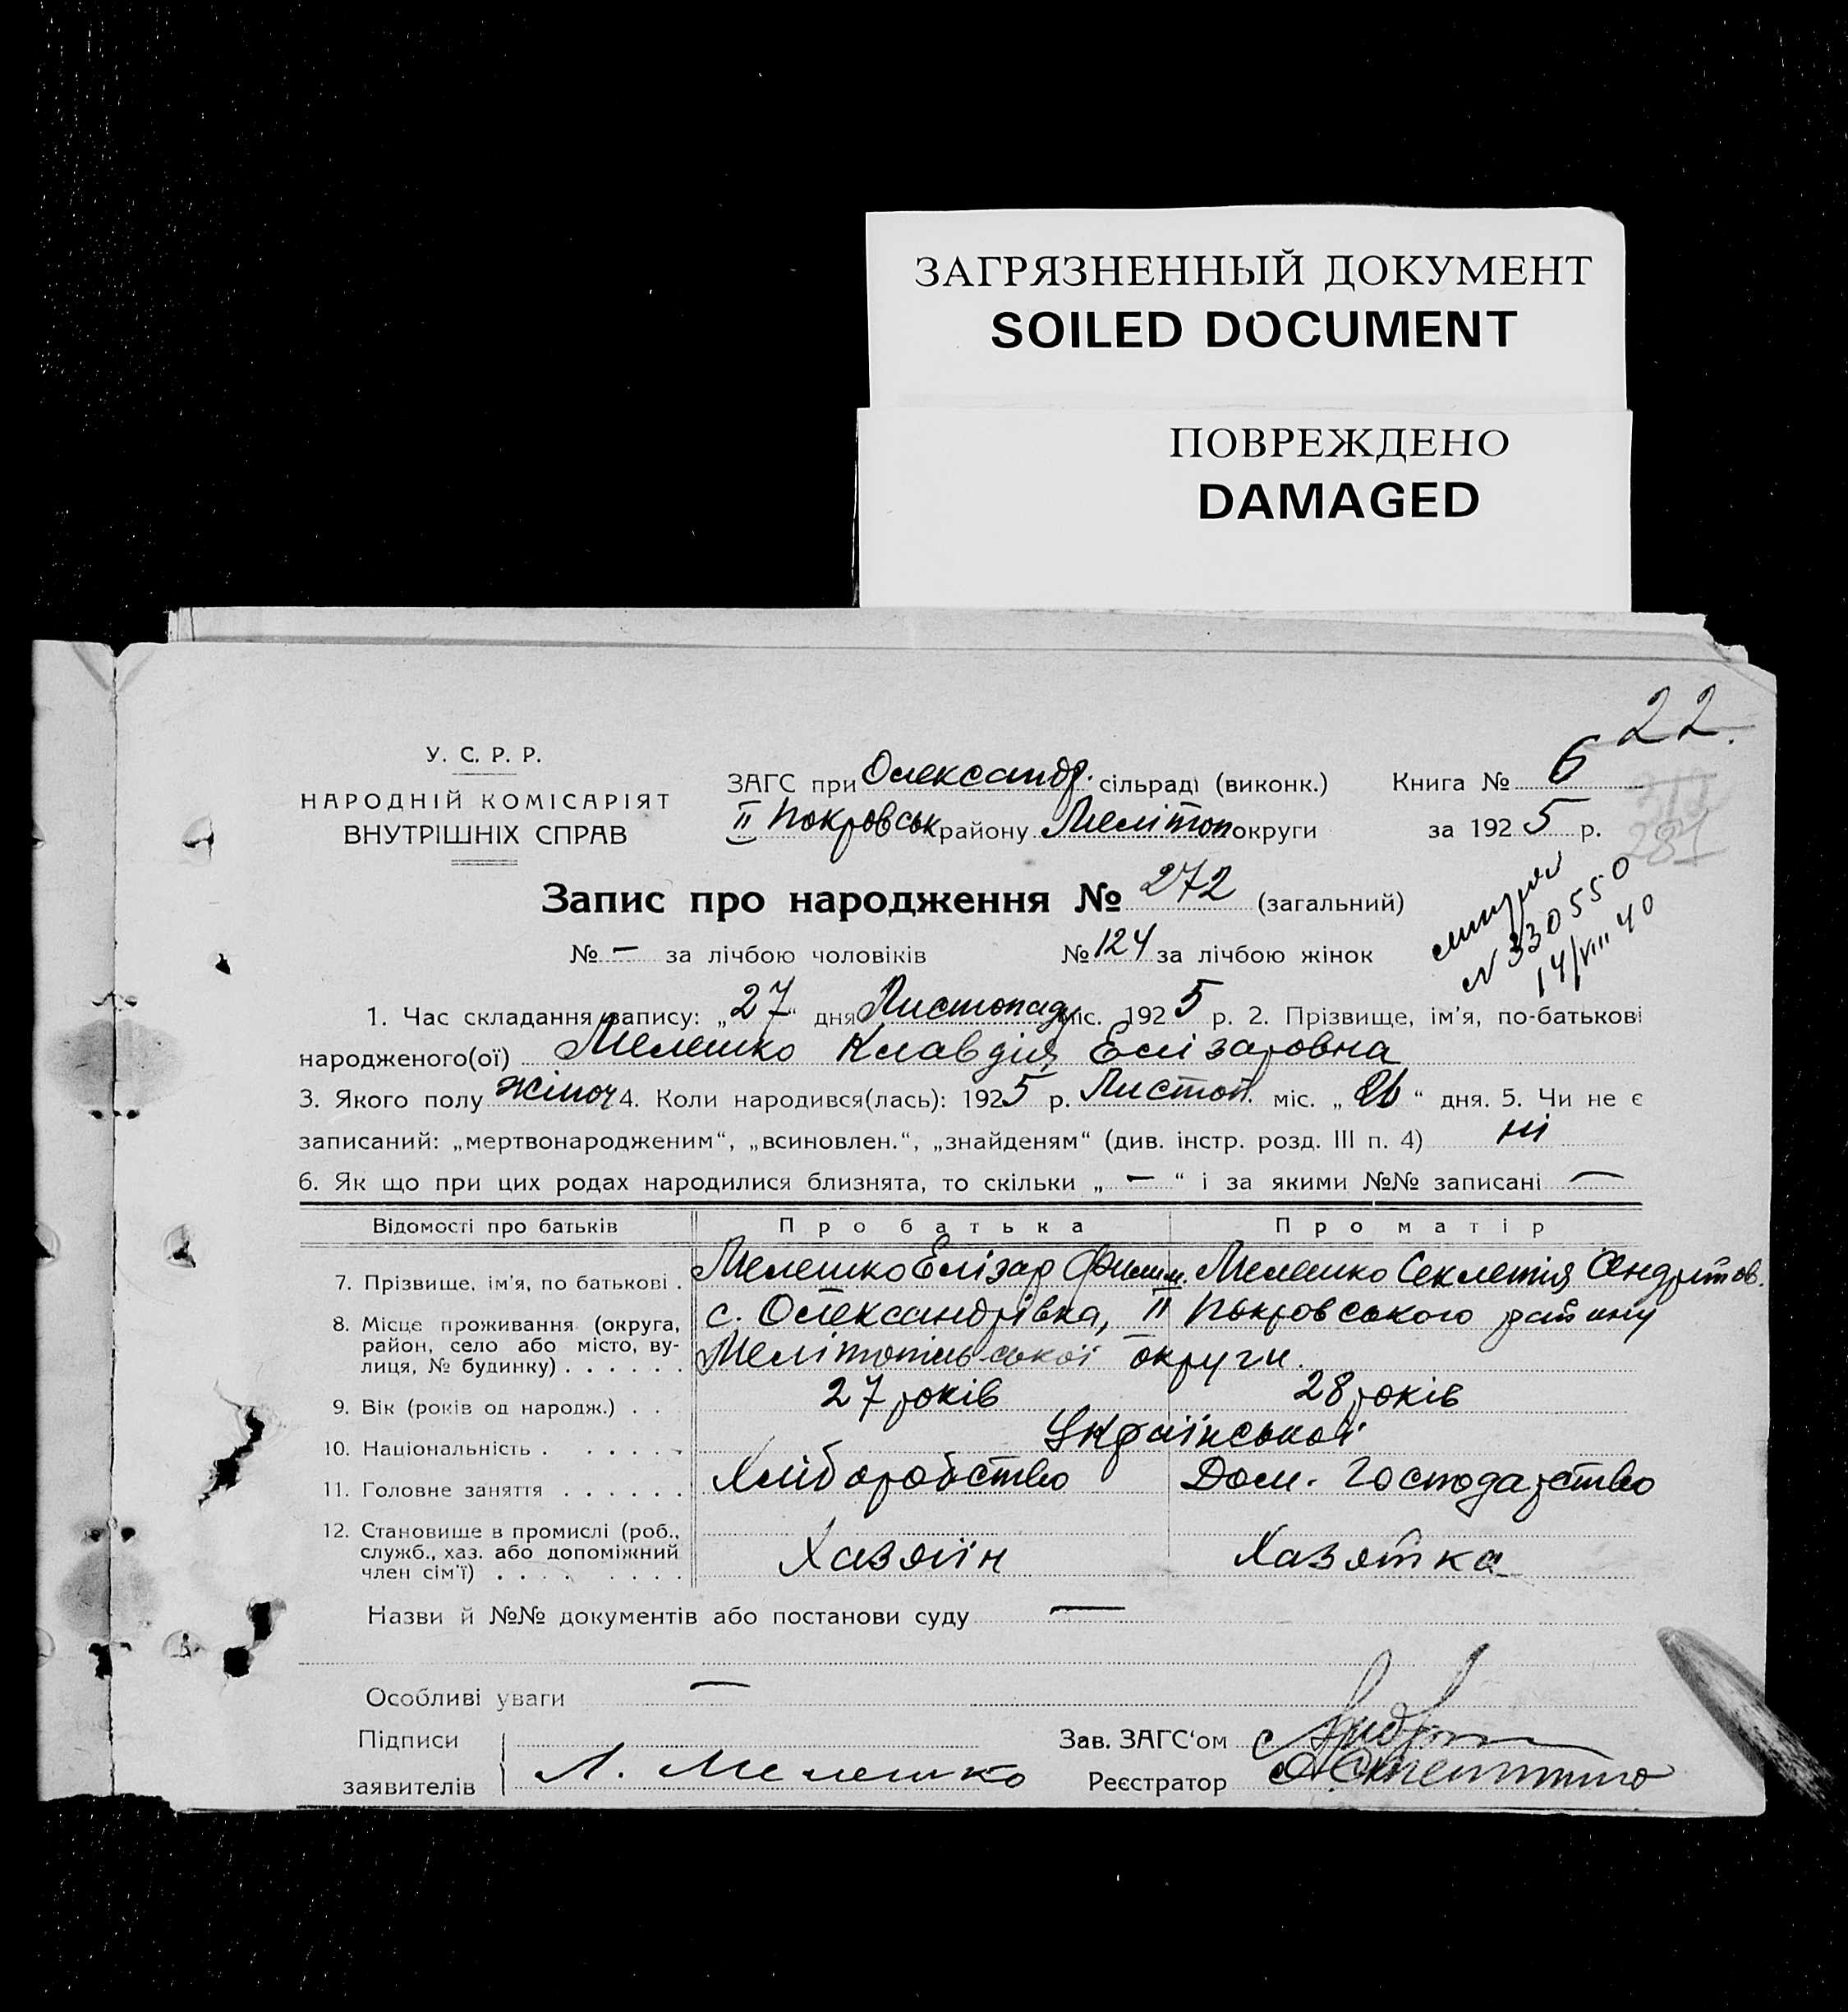 ЗАГРЯЗНЕННЫЙ ДОКУМЕНТ
SOILED DOCUMENT
ПОВРЕЖДЕНО
DAMAGED
22.
У. С. Р. Р.
НАРОДНІЙ КОМІСАРІЯТ
ВНУТРІШНІХ СПРАВ
ЗАГС при Олександр. сільраді (виконк.) Книга № 6
II Покровськ району Мелітоп округи за 1925 р.
281
Запис про народження № 272 (загальний)
№ — за лічбою чоловіків № 124 за лічбою жінок
N 330550
14/VIII 40
1. Час складання запису: „27“ дня Листопаду міс. 1925 р. 2. Прізвище, ім'я, по-батькові
народженого(ої) Мелешко Клавдія Елізаровна
3. Якого полу жіноч 4. Коли народився(лась): 1925 р. Листоп. міс. „ “ дня. 5. Чи не є
записаний: „мертвонародженим“, „всиновлен.“, „знайденям“ (див. інстр. розд. III п. 4) ні
6. Як що при цих родах народилися близнята, то скільки „—“ і за якими №№ записані —
Відомості про батьків Про батька Про матір
7. Прізвище, ім'я, по батькові . Мелешко Елізар Филим. Мелешко Секлетія
8. Місце проживання (округа, район, село або місто, вулиця, № будинку) . . . . . . с. Олександрівка, II Покровського району
Мелітопільської округи.
9. Вік (років од народж.) . . 27 років 28 років
10. Національність . . . . . . Української
11. Головне заняття . . . . . . Хліборобство Дом. Господарство
12. Становище в промислі (роб., служб., хаз. або допоміжний член сім'ї) . . . . . . . . Хазяїн Хазяйка
Назви й №№ документів або постанови суду —
Особливі уваги —
Підписи
заявителів Л. Мелешко
Зав. ЗАГС'ом
Реєстратор